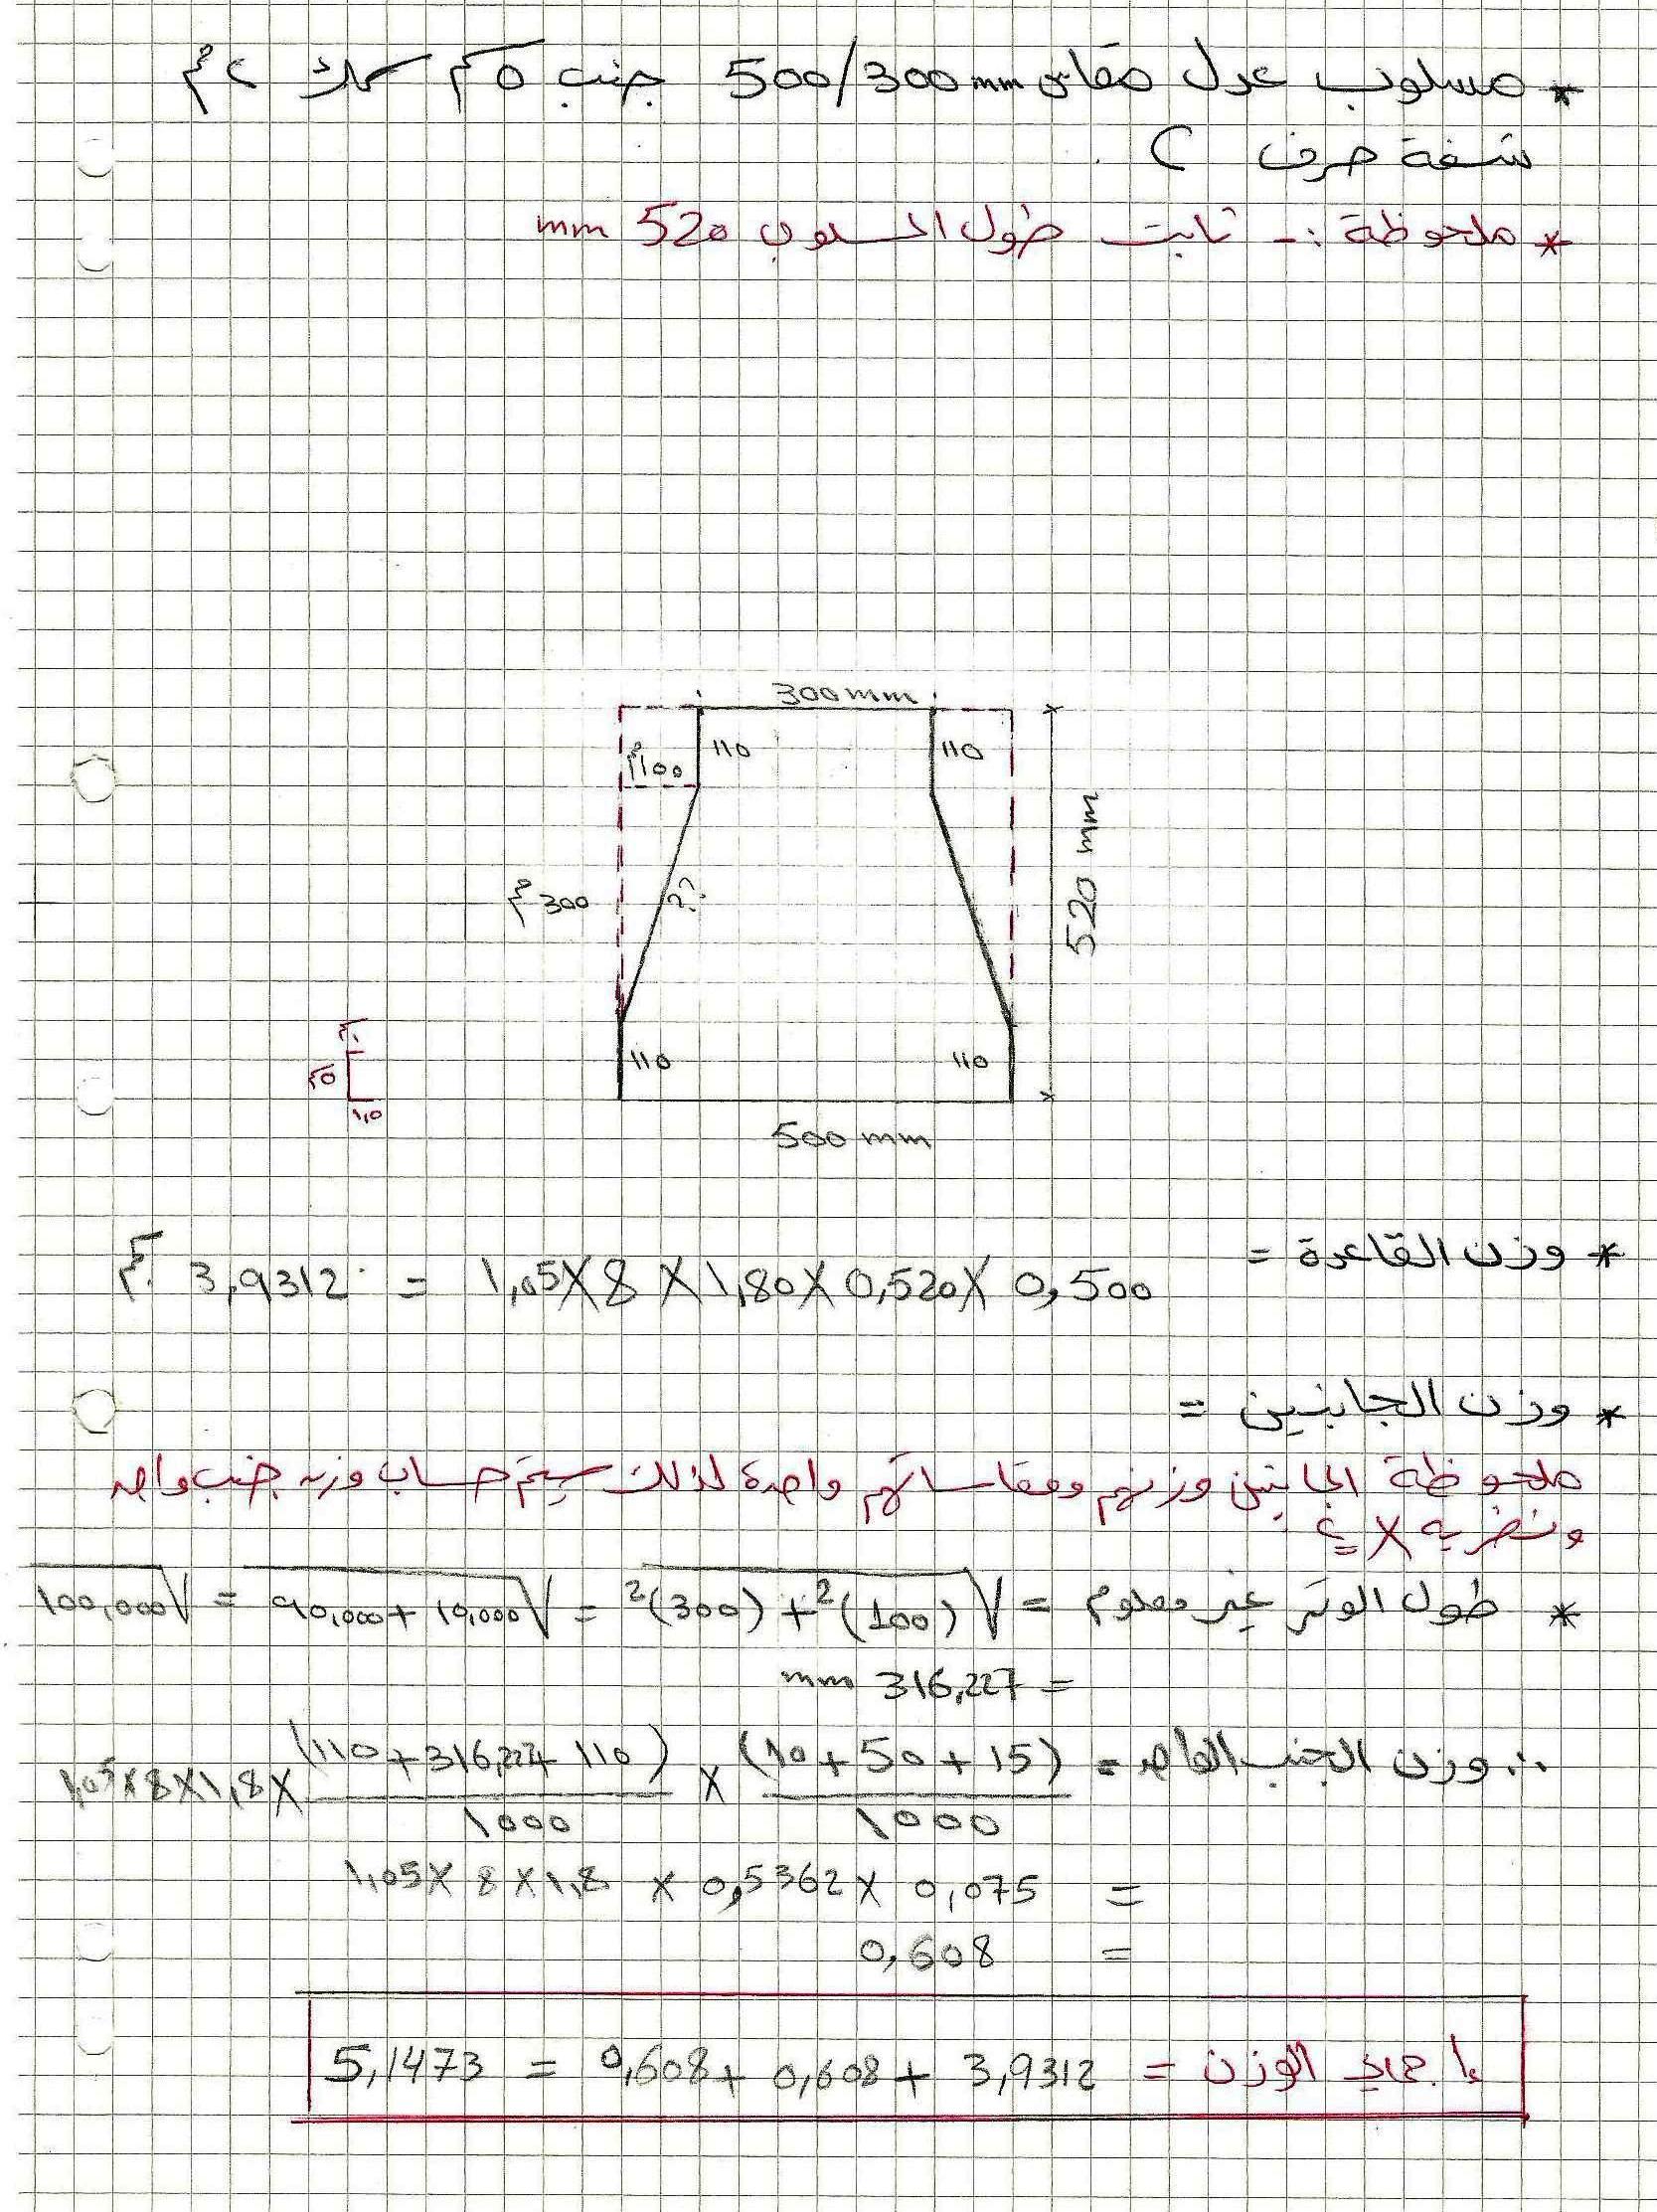 * مسلوب عدل مقاس 500/300mm جنب ٥سم سمك ٢مم
شفة حرف C
* ملحوظة :- ثابت طول المسلوب 520 mm
300mm
110
110
100مم
520 mm
300 مم
??
110
110
١٫٥
500 mm
* وزن القاعدة =
0,500 X 0,520 X 1,80 X 8 X 1,05 = 3,9312 كجم
* وزن الجانبين =
ملحوظة الجانبين وزنهم ومقاساتهم واحدة لذلك سيتم حساب وزن جنب واحد
ونضربه X ٢
* طول الوتر غير معلوم = √(100)² + (300)² = √10,000 + 90,000 = √100,000
= 316,227 mm
∴ وزن الجنب الواحد = (15 + 50 + 10) / 1000 X (110 + 316,227 + 110) / 1000 X 1,8 X 8 X 1,05
= 0,075 X 0,5362 X 1,8 X 8 X 1,05
= 0,608
إجمالي الوزن = 3,9312 + 0,608 + 0,608 = 5,1473